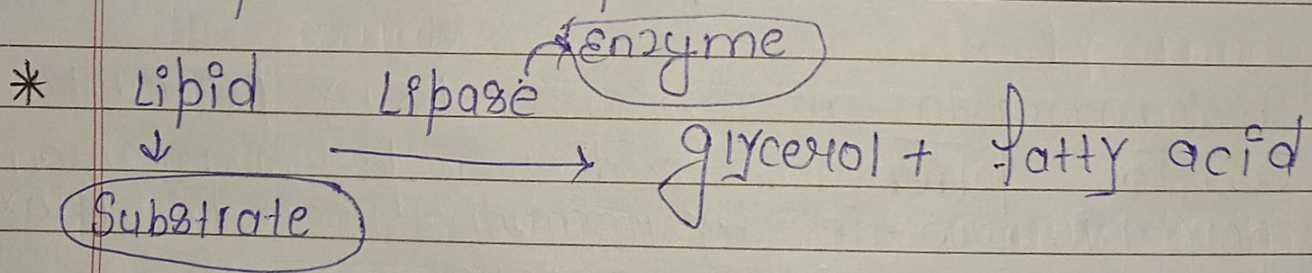 Enzyme
* Lipid Lipase
↓ → glycerol + fatty acid
Substrate